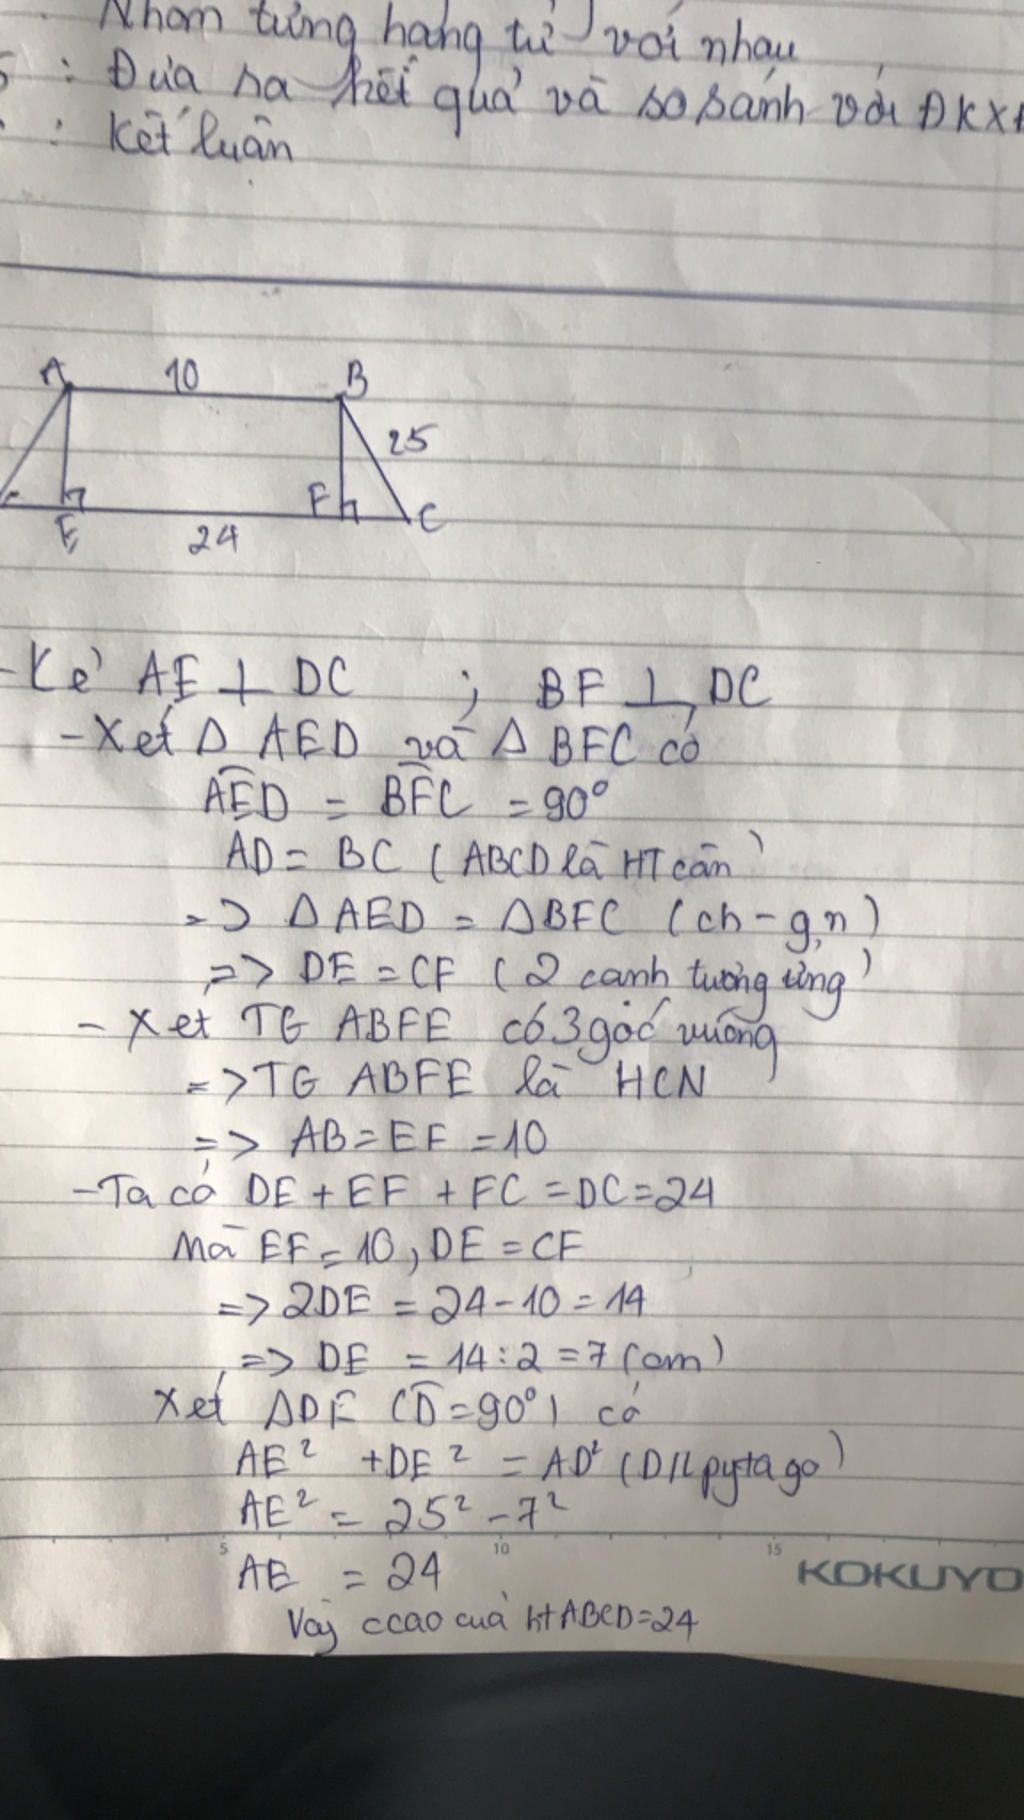 Nhóm từng hạng tử với nhau
5 : Đưa ra kết quả và so sánh với ĐKX
: Kết luận
A 10 B
25
F C
E 24
- Kẻ AE ⊥ DC ; BF ⊥ DC
- Xét Δ AED và Δ BFC có
AED = BFC = 90°
AD = BC ( ABCD là HT cân )
=> Δ AED = Δ BFC ( ch - g.n )
=> DE = CF ( 2 cạnh tương ứng )
- Xét TG ABFE có 3 góc vuông
=> TG ABFE là HCN
=> AB = EF = 10
- Ta có DE + EF + FC = DC = 24
Mà EF = 10 , DE = CF
=> 2DE = 24 - 10 = 14
=> DE = 14 : 2 = 7 (cm)
Xét ΔDE (D = 90°) có
AE² + DE² = AD² (Đ/L pytago)
AE² = 25² - 7²
5 10 15
AE = 24
KOKUYO
Vậy ccao của ht ABCD = 24